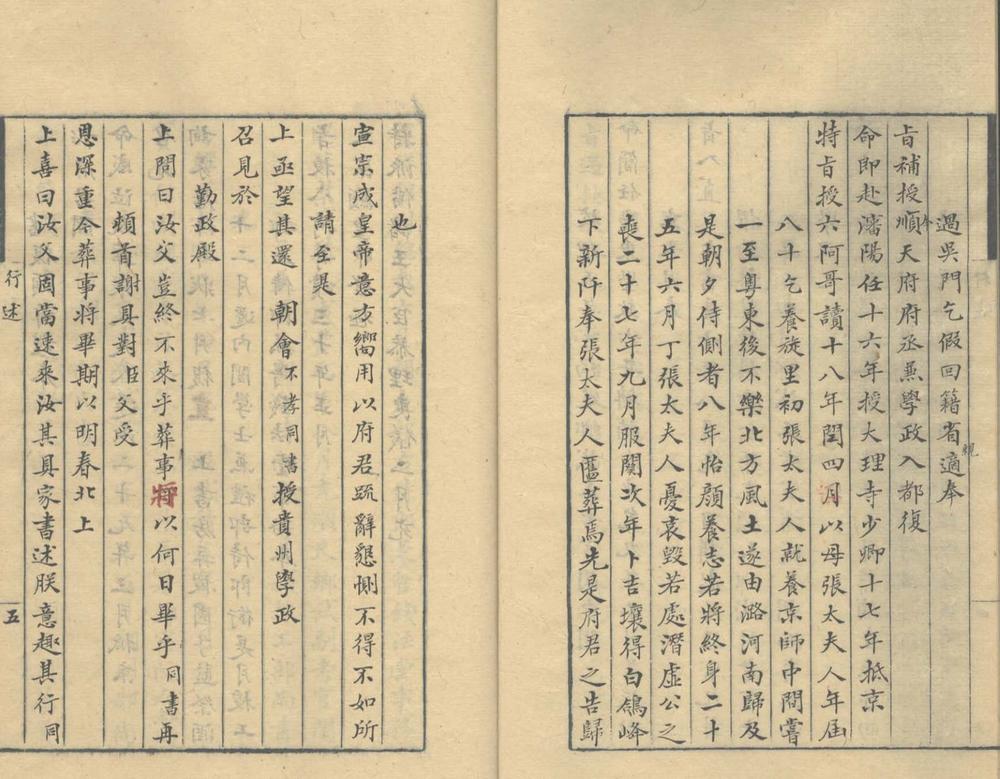 過吳門乞假回籍省親適奉
旨補授順天府府丞兼學政入都復
命即赴瀋陽任十六年授大理寺少卿十七年抵京
特旨授六阿哥讀十八年閏四月以母張太夫人年屆
八十乞養旋里初張太夫人就養京師中間嘗
一至粵東後不樂北方風土遂由潞河南歸及
是朝夕侍側者八年怡顏養志若將終身二十
五年六月丁張太夫人憂哀毀若處潛虛公之
喪二十七年九月服闋次年卜吉壤得白鴿峰
下新阡奉張太夫人匶葬焉先是府君之告歸
也
宣宗成皇帝意方嚮用以府君疏辭懇惻不得不如所
請至是
上亟望其還朝會不孝同書授貴州學政
召見於
勤政殿
上問曰汝父豈終不來乎葬事將以何日畢乎同書再
頓首謝具對臣父受
恩深重今葬事將畢期以明春北上
上喜曰汝父固當速來汝其具家書述朕意趣其行同
行述
五